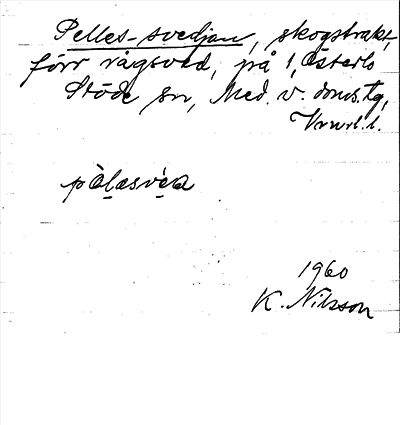 Pelles-svedjan, skogstrakt,
förr rågsved, på 1, Österlo
Stöde sn, Med. v. doms. tg,
Vnrl. l.
pàlæsvéa
1960
K. Nilsson